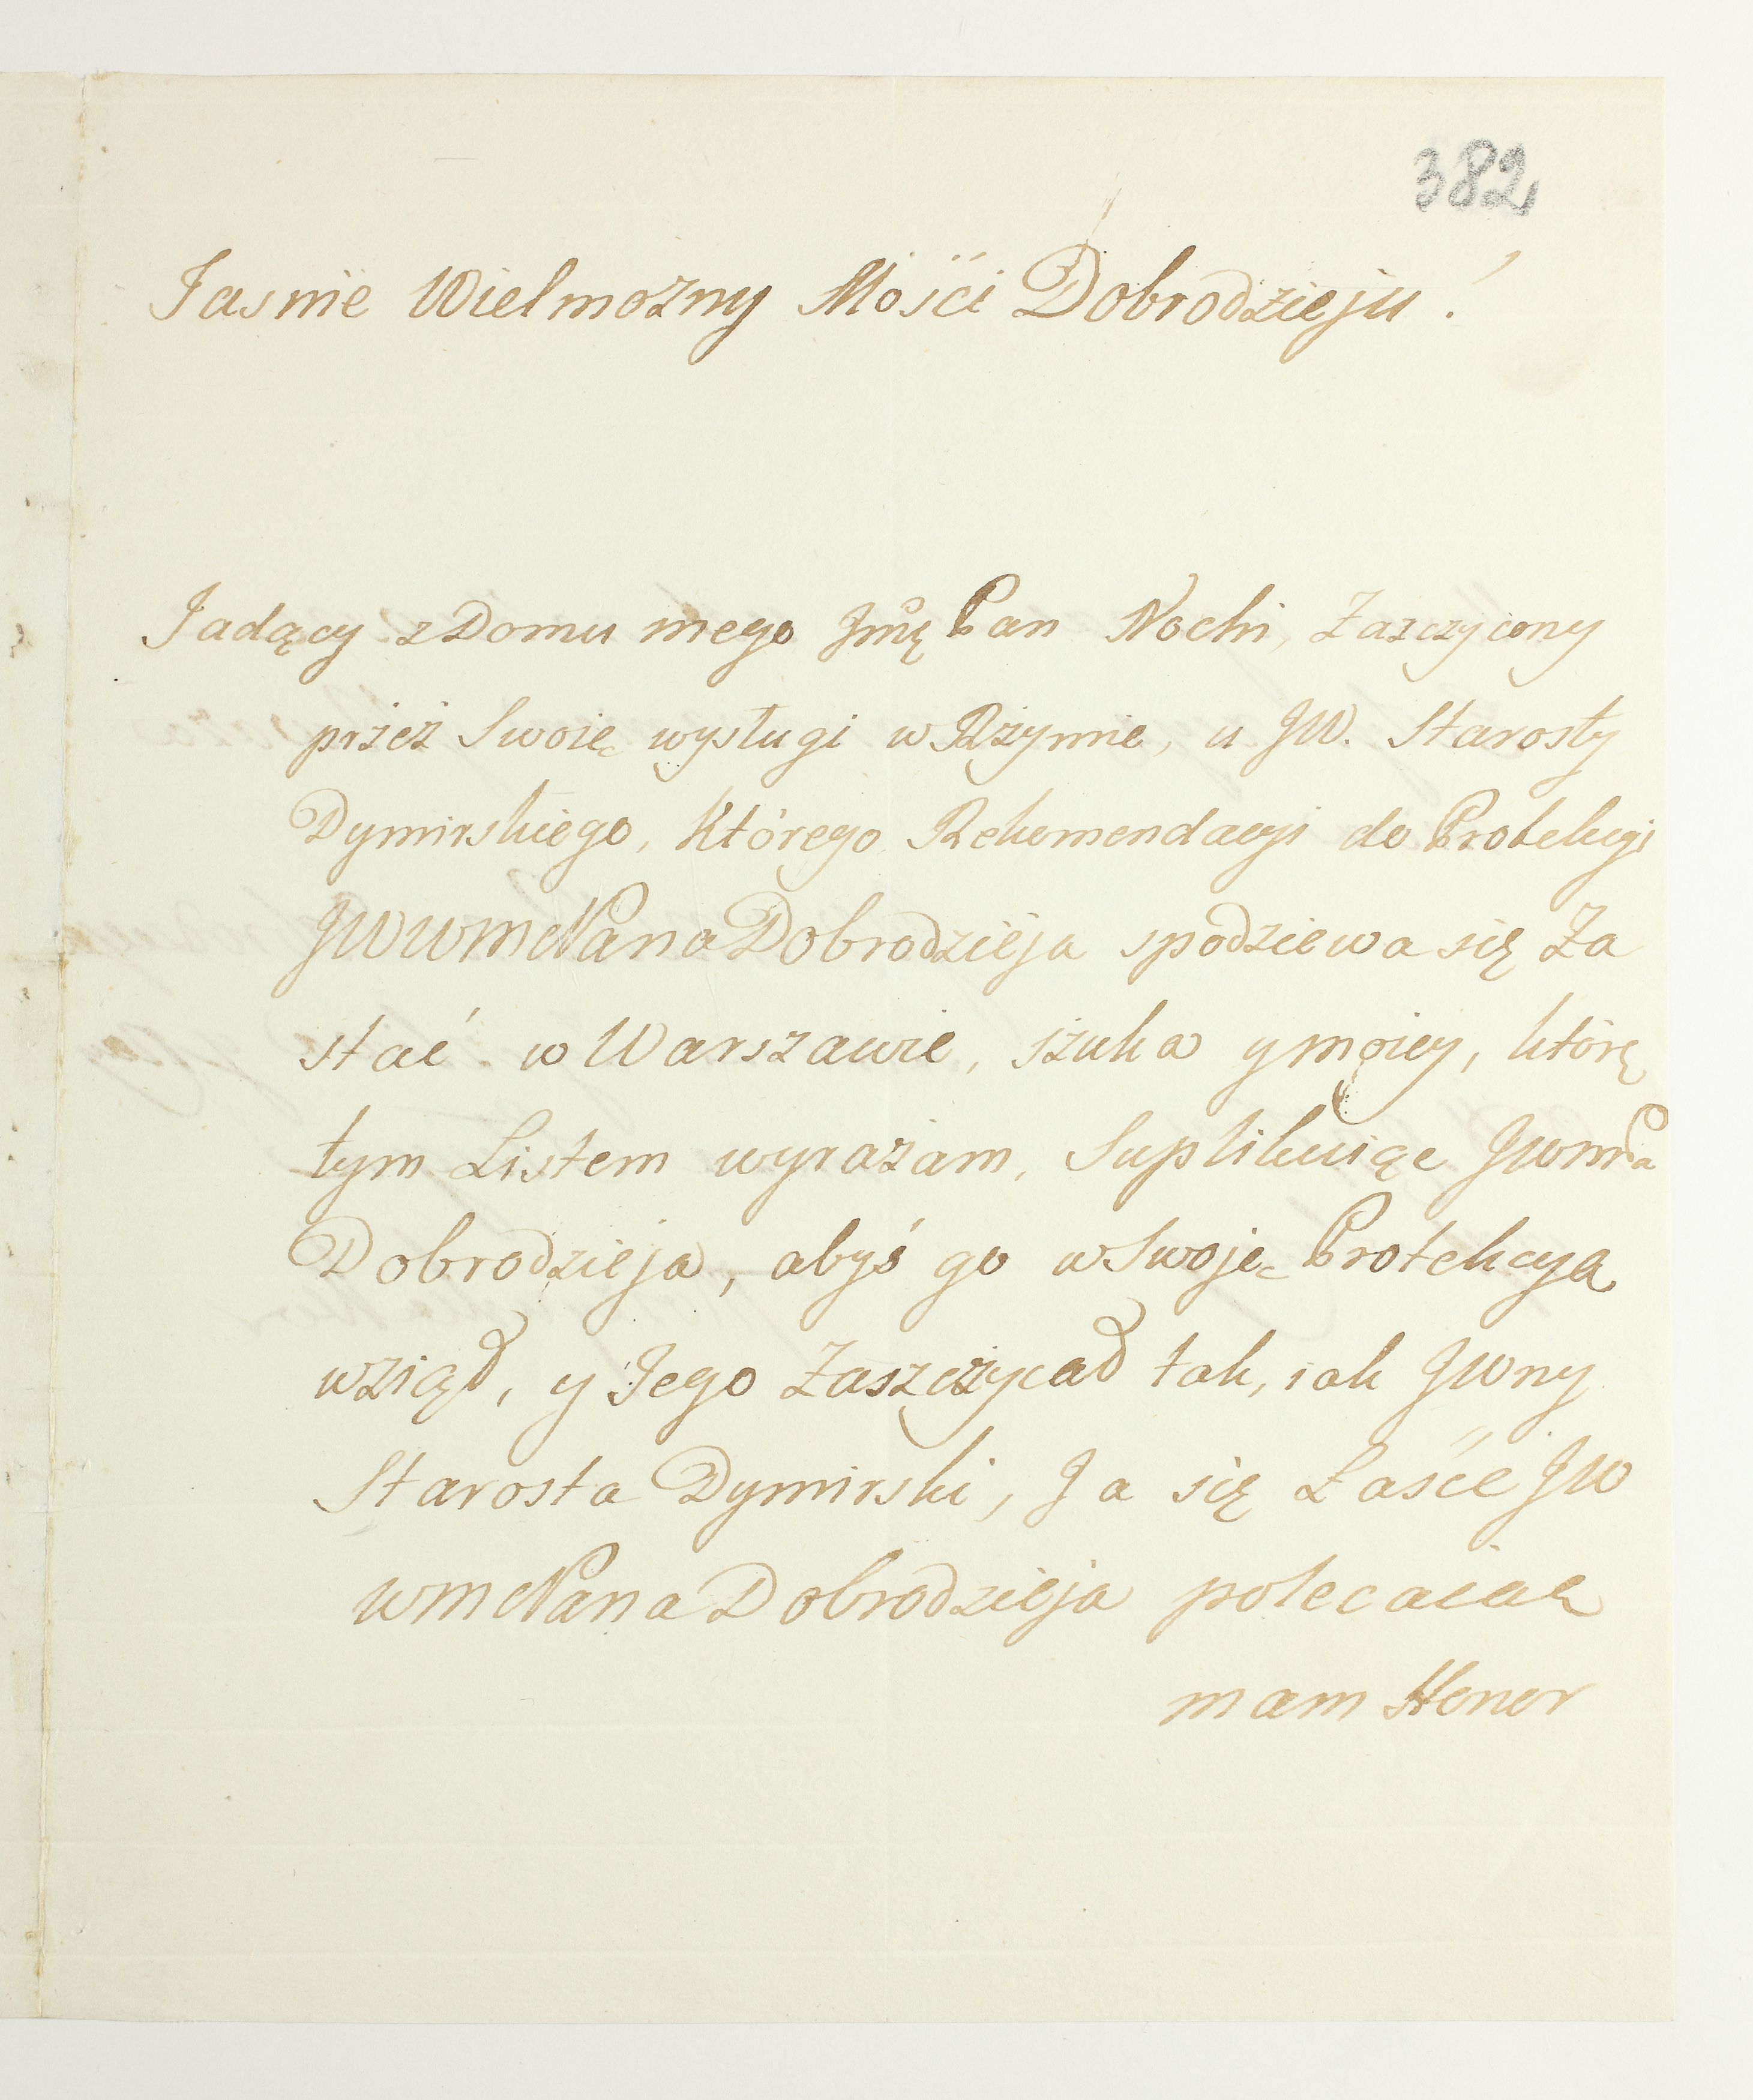 382
Jasnie Wielmożny Mości Dobrodzieju!
Jadący z Domu mego Jmę Pan Nochi, Zaszczycony
przez Swoię wysługi w Rzymie, u JW. Starosty
Dymirskiego, Którego Rekomendacyi do Protekcyi
JWWMMPana Dobrodzieja spodziewa się Za
stać w Warszawie, szuka y moiey, którę
tym Listem wyrażam, Suplikuiąc JWmPa
Dobrodzieja, abyś go w Swoję Protekcyą
wziął, y Jego Zaszczycał tak, iak JWny
Starosta Dymirski, Ja się Łasce JW
WMMPana Dobrodzieja polecaiąc
mam Honor